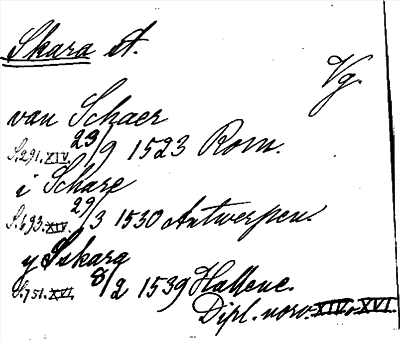 Skara st.
Vg.
van Schaer
S. 291. XIV. 23/9 1523 Rom.
i Schare
S. 693. XIV. 29/3 1530 Antwerpen.
y Sskara
S. 751. XVI. 8/2 1539 Hallene.
Dipl. norv. XIV. XVI.